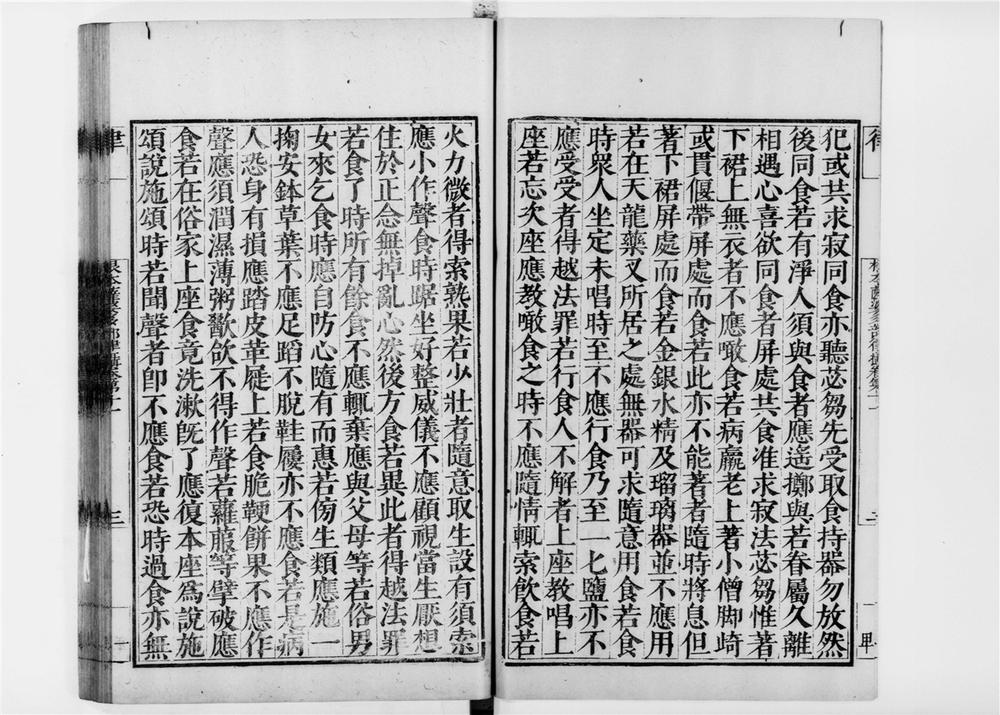 犯或共求寂同食亦聽苾芻先受取食持器勿放然
後同食若有淨人須與食者應遙擲與若眷屬久離
相遇心喜欲同食者屏處共食准求寂法苾芻惟著
下裙上無衣者不應噉食若病羸老上著小僧脚崎
或貫偃帶屏處而食若此亦不能著者隨時將息但
著下裙屏處而食若金銀水精及瑠璃器並不應用
若在天龍藥叉所居之處無器可求隨意用食若食
時衆人坐定未唱時至不應行食乃至一七鹽亦不
應受受者得越法罪若行食人不解者上座教唱上
座若忘次座應教噉食之時不應隨情輒索飲食若
火力微者得索熟果若少壯者隨意取生設有須索
應小作聲食時踞坐好整威儀不應顧視當生厭想
住於正念無掉亂心然後方食若異此者得越法罪
若食了時所有餘食不應輒棄應與父母等若俗男
女來乞食時應自防心隨有而惠若傍生類應施一
掬安鉢草葉不應足蹈不脫鞋屨亦不應食若是病
人恐身有損應踏皮革屣上若食脆鞕餅果不應作
聲應須潤濕薄粥歠飲不得作聲若蘿菔等擘破應
食若在俗家上座食竟洗漱旣了應復本座爲說施
頌說施頌時若聞聲者卽不應食若恐時過食亦無